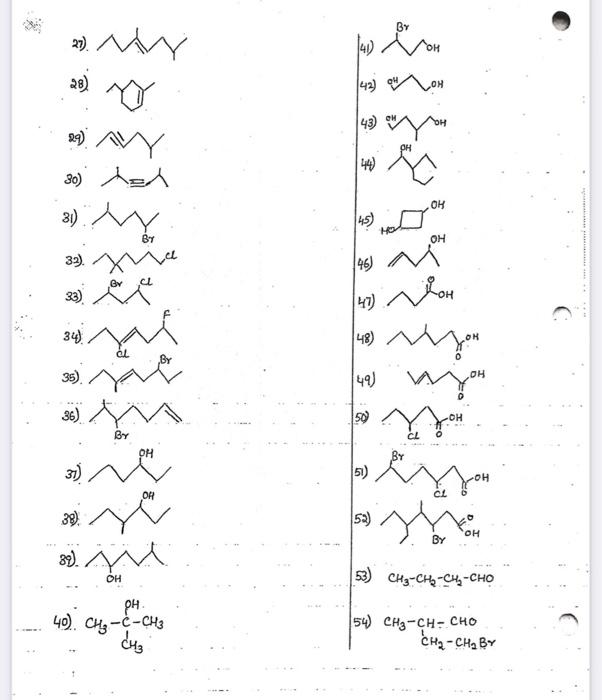 27).
28).
29).
30)
31)
Br
32).
Cl
33).
Br
Cl
34).
F
Cl
35).
Br
36).
Br
37)
OH
38).
OH
39).
OH
40).
OH
CH3-C-CH3
CH3
41)
Br
OH
42)
OH
OH
43)
OH
OH
44)
OH
45)
OH
HO
46)
OH
47)
O
OH
48)
OH
O
49)
OH
O
50)
OH
Cl
O
51)
Br
OH
Cl
O
52)
O
OH
Br
53) CH3-CH2-CH2-CHO
54) CH3-CH-CHO
CH2-CH2Br